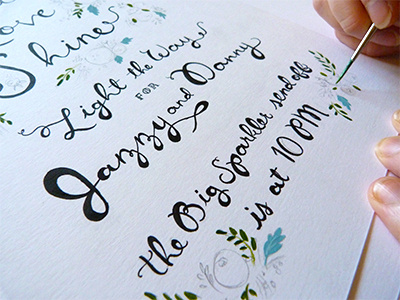 love
Shine
Light the Way
FOR
Jazzy and Danny
the Big Sparkler send off
is at 10 PM